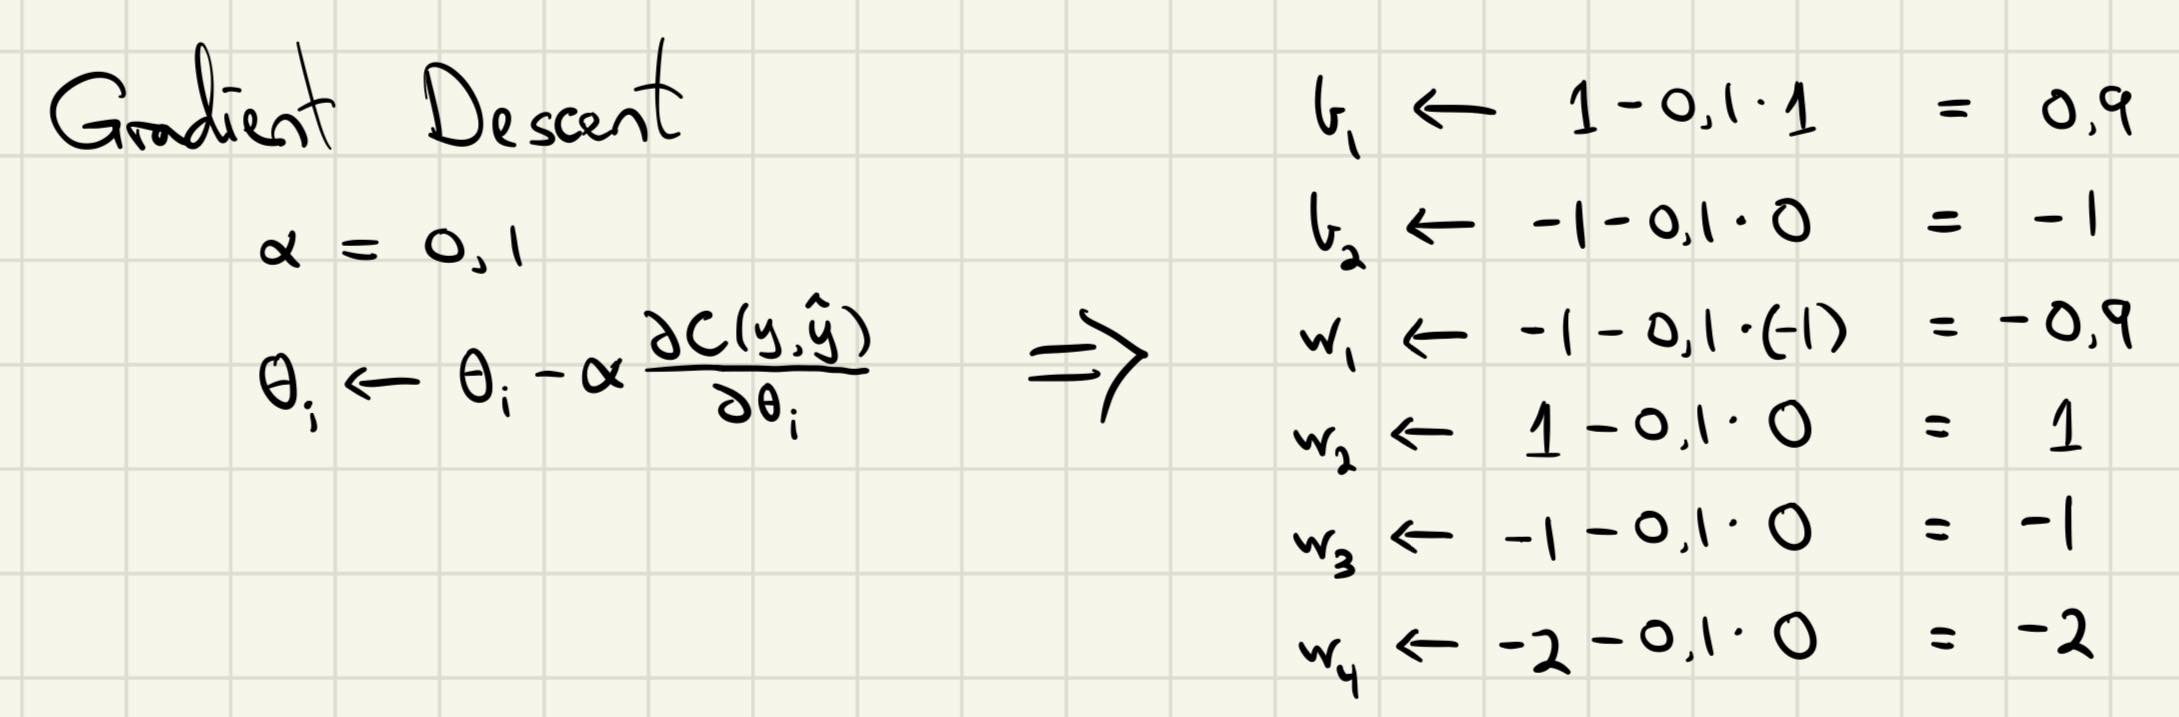 Gradient Descent
α = 0,1
θᵢ ← θᵢ - α ∂C(y,ŷ)/∂θᵢ ⇒
b₁ ← 1 - 0,1 · 1 = 0,9
b₂ ← -1 - 0,1 · 0 = -1
w₁ ← -1 - 0,1 · (-1) = -0,9
w₂ ← 1 - 0,1 · 0 = 1
w₃ ← -1 - 0,1 · 0 = -1
w₄ ← -2 - 0,1 · 0 = -2